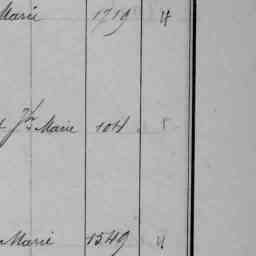 Marie 1719 4
Jh Marie 104
Marie 1549 4